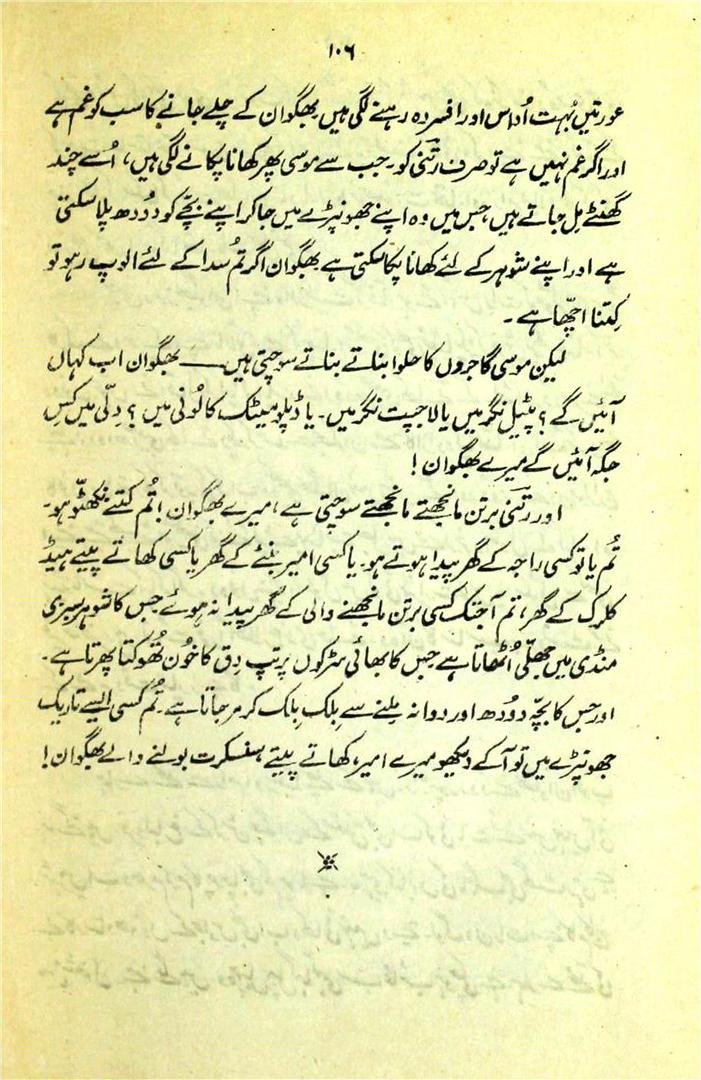 ۱۰۶
عورتیں بُہت اُداس اور افسردہ رہنے لگی ہیں بھگوان کے چلے جانے کا سب کو غم ہے
اور اگر غم نہیں ہے تو صرف رتنی کو۔ جب سے موسی پھر کھانا پکانے لگی ہیں، اُسے چند
گھنٹے مِل جاتے ہیں جس میں وہ اپنے جھونپڑے میں جا کر اپنے بچّے کو دُودھ پلا سکتی
ہے اور اپنے شوہر کے لئے کھانا پکا سکتی ہے بھگوان اگر تُم سدا کے لئے الوپ رہو تو
کِتنا اچھّا ہے۔
لیکن موسی گاجروں کا حلوا بناتے بناتے سوچتی ہیں —— بھگوان اب کہاں
آئیں گے؟ پٹیل نگر میں یا لاجپت نگر میں۔ یا ڈپلومیٹک کالونی میں؟ دِلّی میں کِس
جگہ آئیں گے میرے بھگوان!
اور رتنی برتن مانجھتے مانجھتے سوچتی ہے، میرے بھگوان! تُم کتنے نکھٹّو ہو۔
تُم یا تو کسی راجہ کے گھر پیدا ہوتے ہو۔ یا کسی امیر بنئے کے گھر یا کسی کھاتے پیتے ہیڈ
کلرک کے گھر، تم آجتک کسی برتن مانجھنے والی کے گھر پیدا نہ ہوئے جس کا شوہر سبزی
منڈی میں جھلّی اُٹھاتا ہے جس کا بھائی سڑکوں پر تپ دِق کا خُون تُھوکتا پھرتا ہے۔
اور جس کا بچّہ دودھ اور دوا نہ ملنے سے بِلک بِلک کر مر جاتا ہے۔ تُم کسی ایسے تاریک
جھونپڑے میں تو آ کے دیکھو میرے امیر، کھاتے پیتے سنسکرت بولنے والے بھگوان!